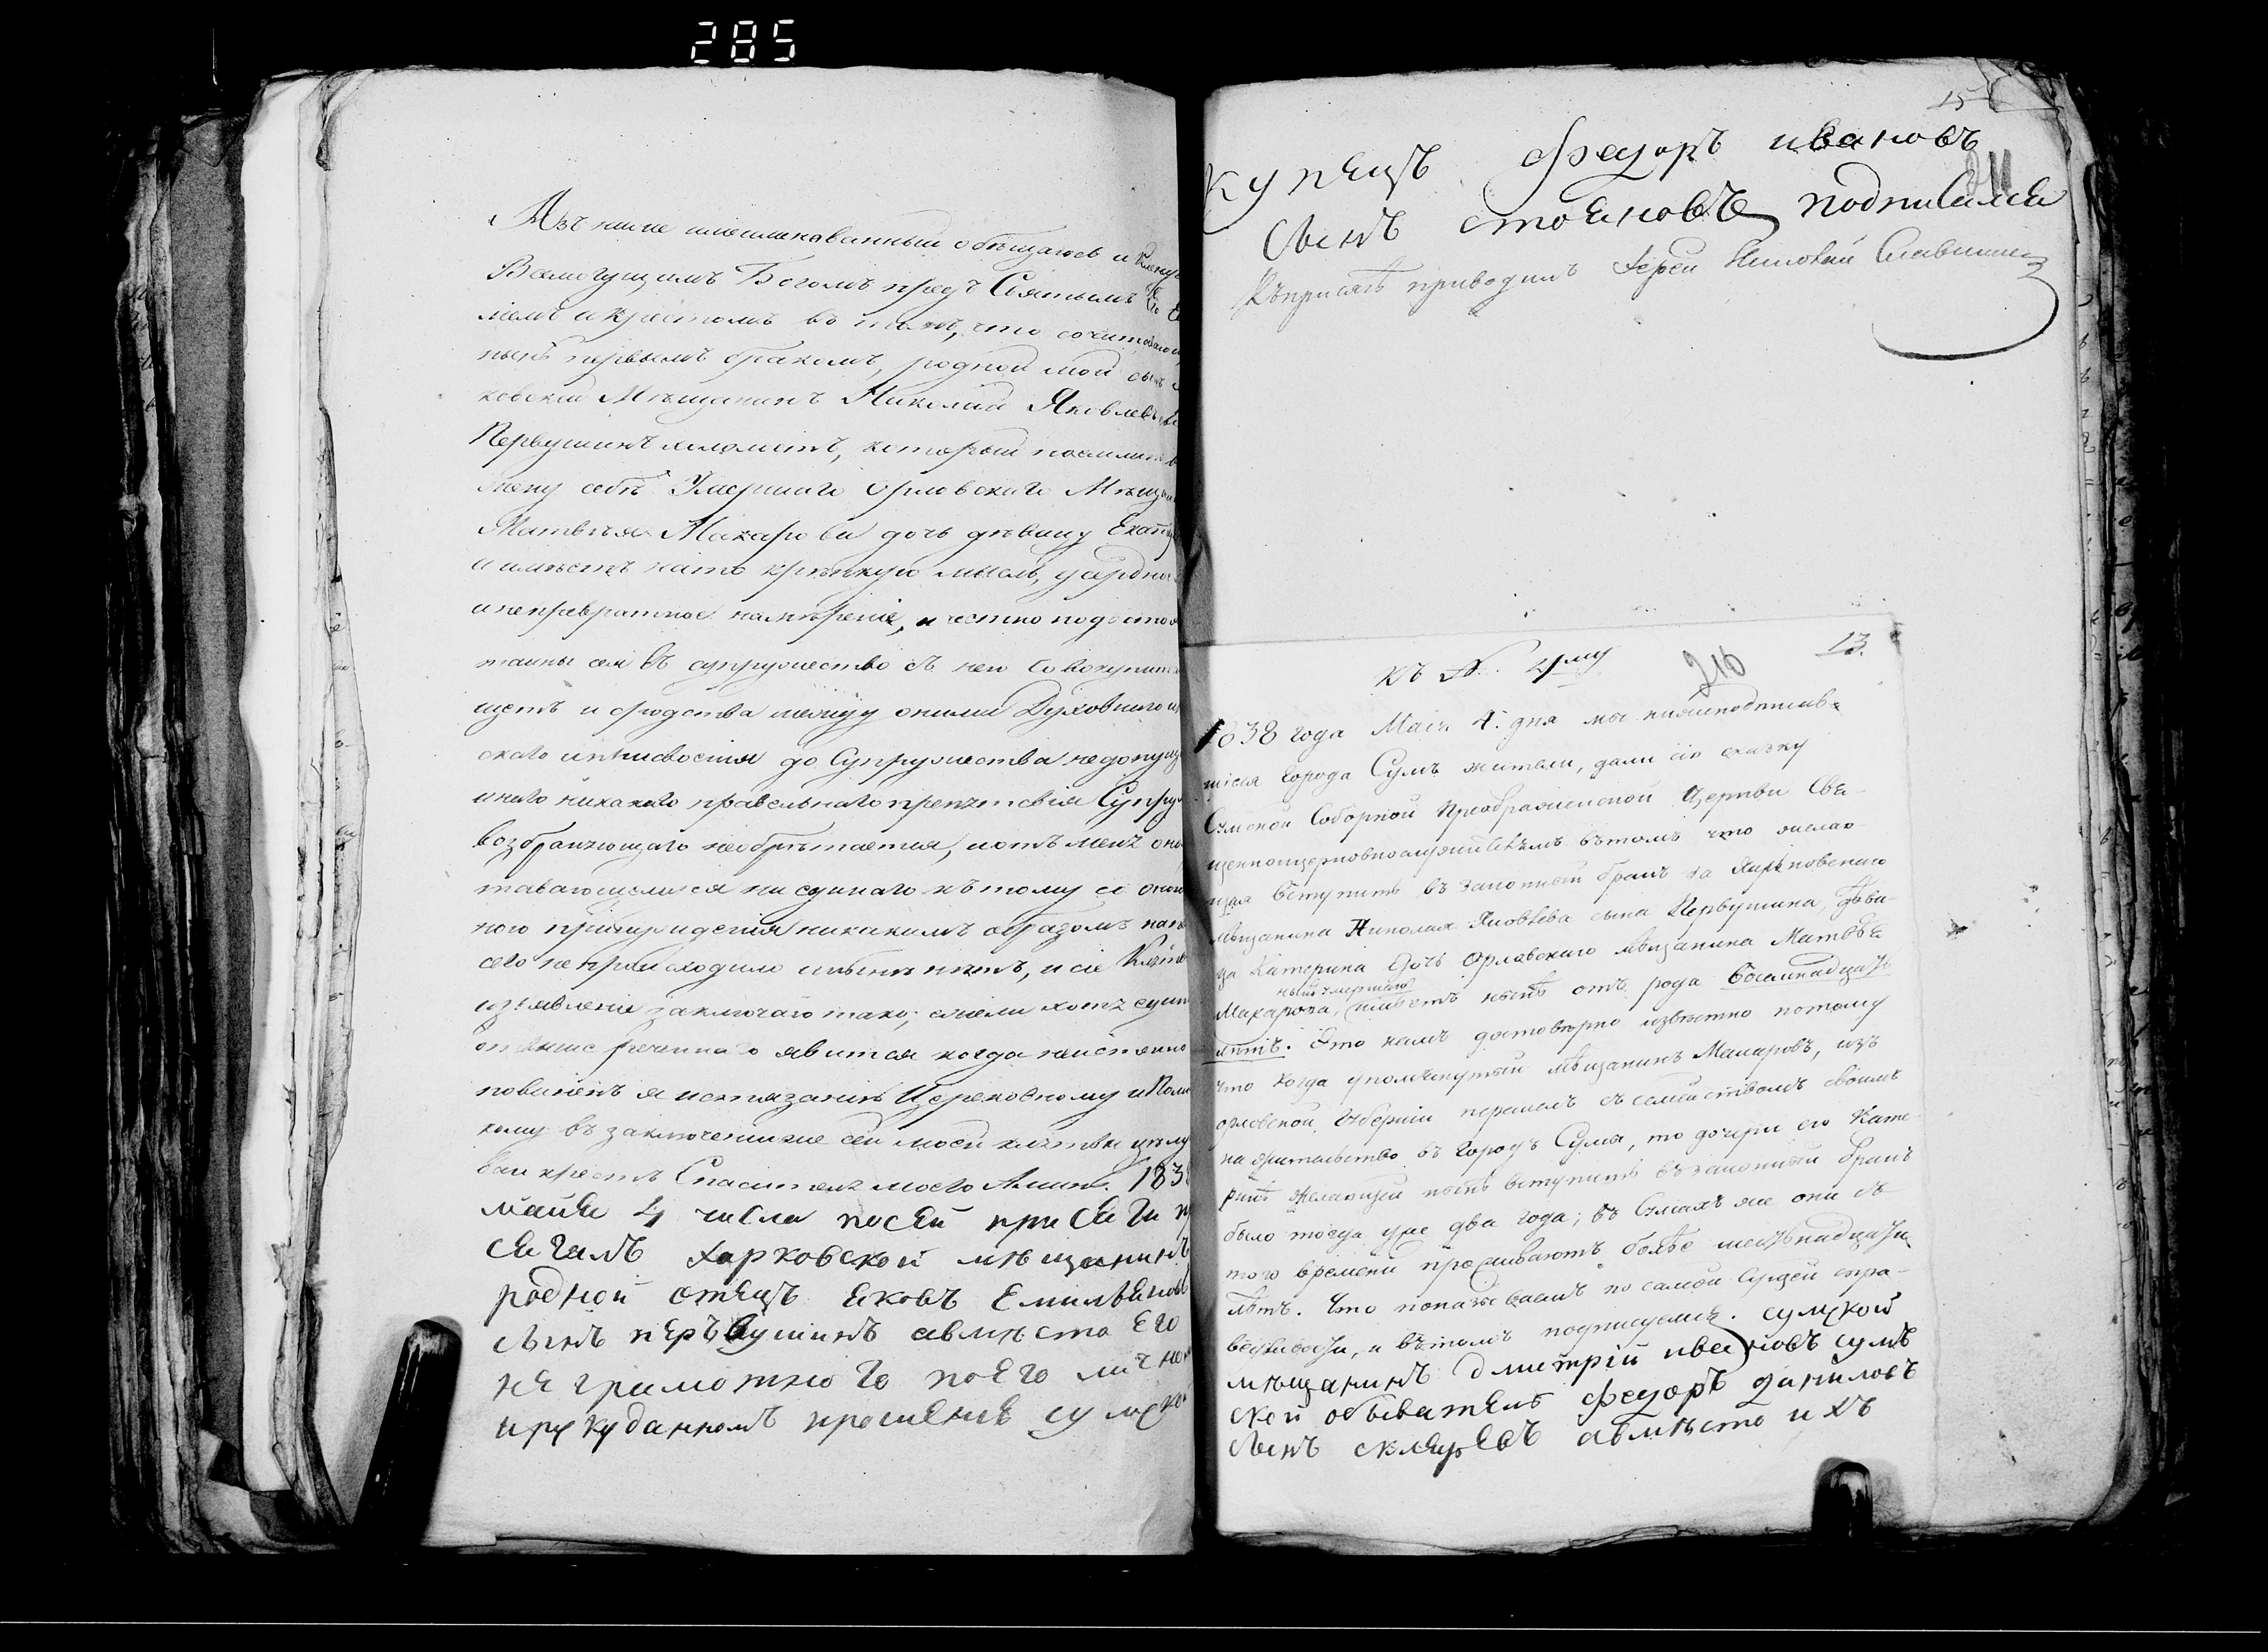 285
Азъ ниже имеемнованный обѣщаюсь и клену
Всемогущимъ Богомъ предъ Святымъ Его
лемъ и крестомъ въ томъ, что сочитоваю
нынѣ первымъ бракомъ, родной мой сынъ
ковский Мѣщанинъ Николай Яковлевъ
Первушинъ холостъ, который поемлетъ
жену себѣ Умершаго Орловскаго Мѣщан
Матвѣя Макарова дочь дѣвицу Екатер
и имѣетъ на то крѣпкую мысль, усердно
и непревратное намѣреніе, и честно по досто
тайны сея въ супружество съ нею Совокупит
щетъ и сродства между оными Духовнаго
скаго и свойствія до Супружества недопущ
инаго никакаго правельнаго препятствія Супру
возбраняющаго необрѣтается, и отъ меня
тавающемся ни единаго къ тому
ного принуждения никакимъ образомъ
сего не происходило и нынѣ нѣтъ, и сіе
изъявленіе заключаю тако; ежели хотя един
отъ выше реченнаго явится когда неистенно
повиненъ я истязанію Церковному и
кому въ заключеніиже сей моей клятвы цѣлу
ваю крестъ Спасителя моего Аминь. 183
майя 4 числа посей присяги
сягалъ харковской мещанинъ
родной отецъ яковъ емильянов
сынъ перъвушинъ авместо его
не грамотного поего лично
ирукуданномъ прошенье сумско
15
купецъ федоръ ивановъ
211
сынъ стояновъ подписался
Къ присягѣ приводилъ Іерей Николай
къ №. 4му
210
13.
1838 года Маія 4. дня мы нижеподписав-
шіеся города Сумъ жители, дали сію сказку
Сумской Соборной Преображенской Церкви Свя-
щенноцерковнослужителямъ въ томъ что желаю-
щая вступить въ законный бракъ за Харьковскаго
мѣщанина Николая Яковлева сына Первушина, дѣви-
ца Катерина дочь Орловскаго мѣщанина Матвѣя
нынѣ умершаго
Макарова, имѣетъ нынѣ отъ рода восемнадцать
лѣтъ. Это намъ достовѣрно извѣстно потому
что когда упомянутый мѣщанинъ Макаровъ, изъ
орловской Губерніи перешелъ съ семействомъ своимъ
на жительство въ городъ Сумы, то дочери его Кате-
ринѣ желающей нынѣ вступить въ законный бракъ
было тогда уже два года; въ Сумахъ же они съ
того времени проживаютъ болѣе шестьнадцати
лѣтъ. Что показываемъ по самой сущей спра-
ведливости, и въ томъ подписуемся. сумской
мѣщанинъ дмитрій ивановъ сумъ
ской обыватель федоръ даниловъ
сынъ скляровъ авместо ихъ